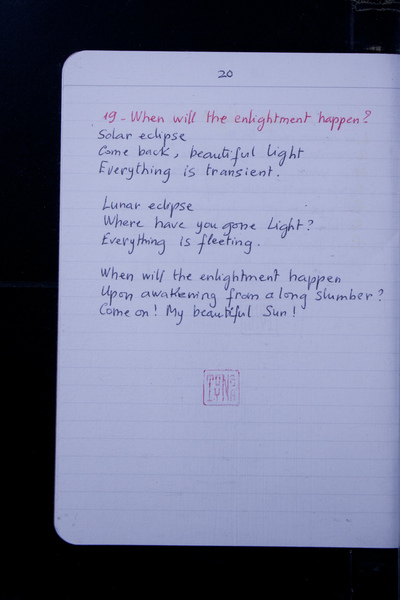 20
19 - When will the enlightment happen?
Solar eclipse
Come back, beautiful Light
Everything is transient.
Lunar eclipse
Where have you gone Light?
Everything is fleeting.
When will the enlightment happen
Upon awakening from a long slumber?
Come on! My beautiful Sun!